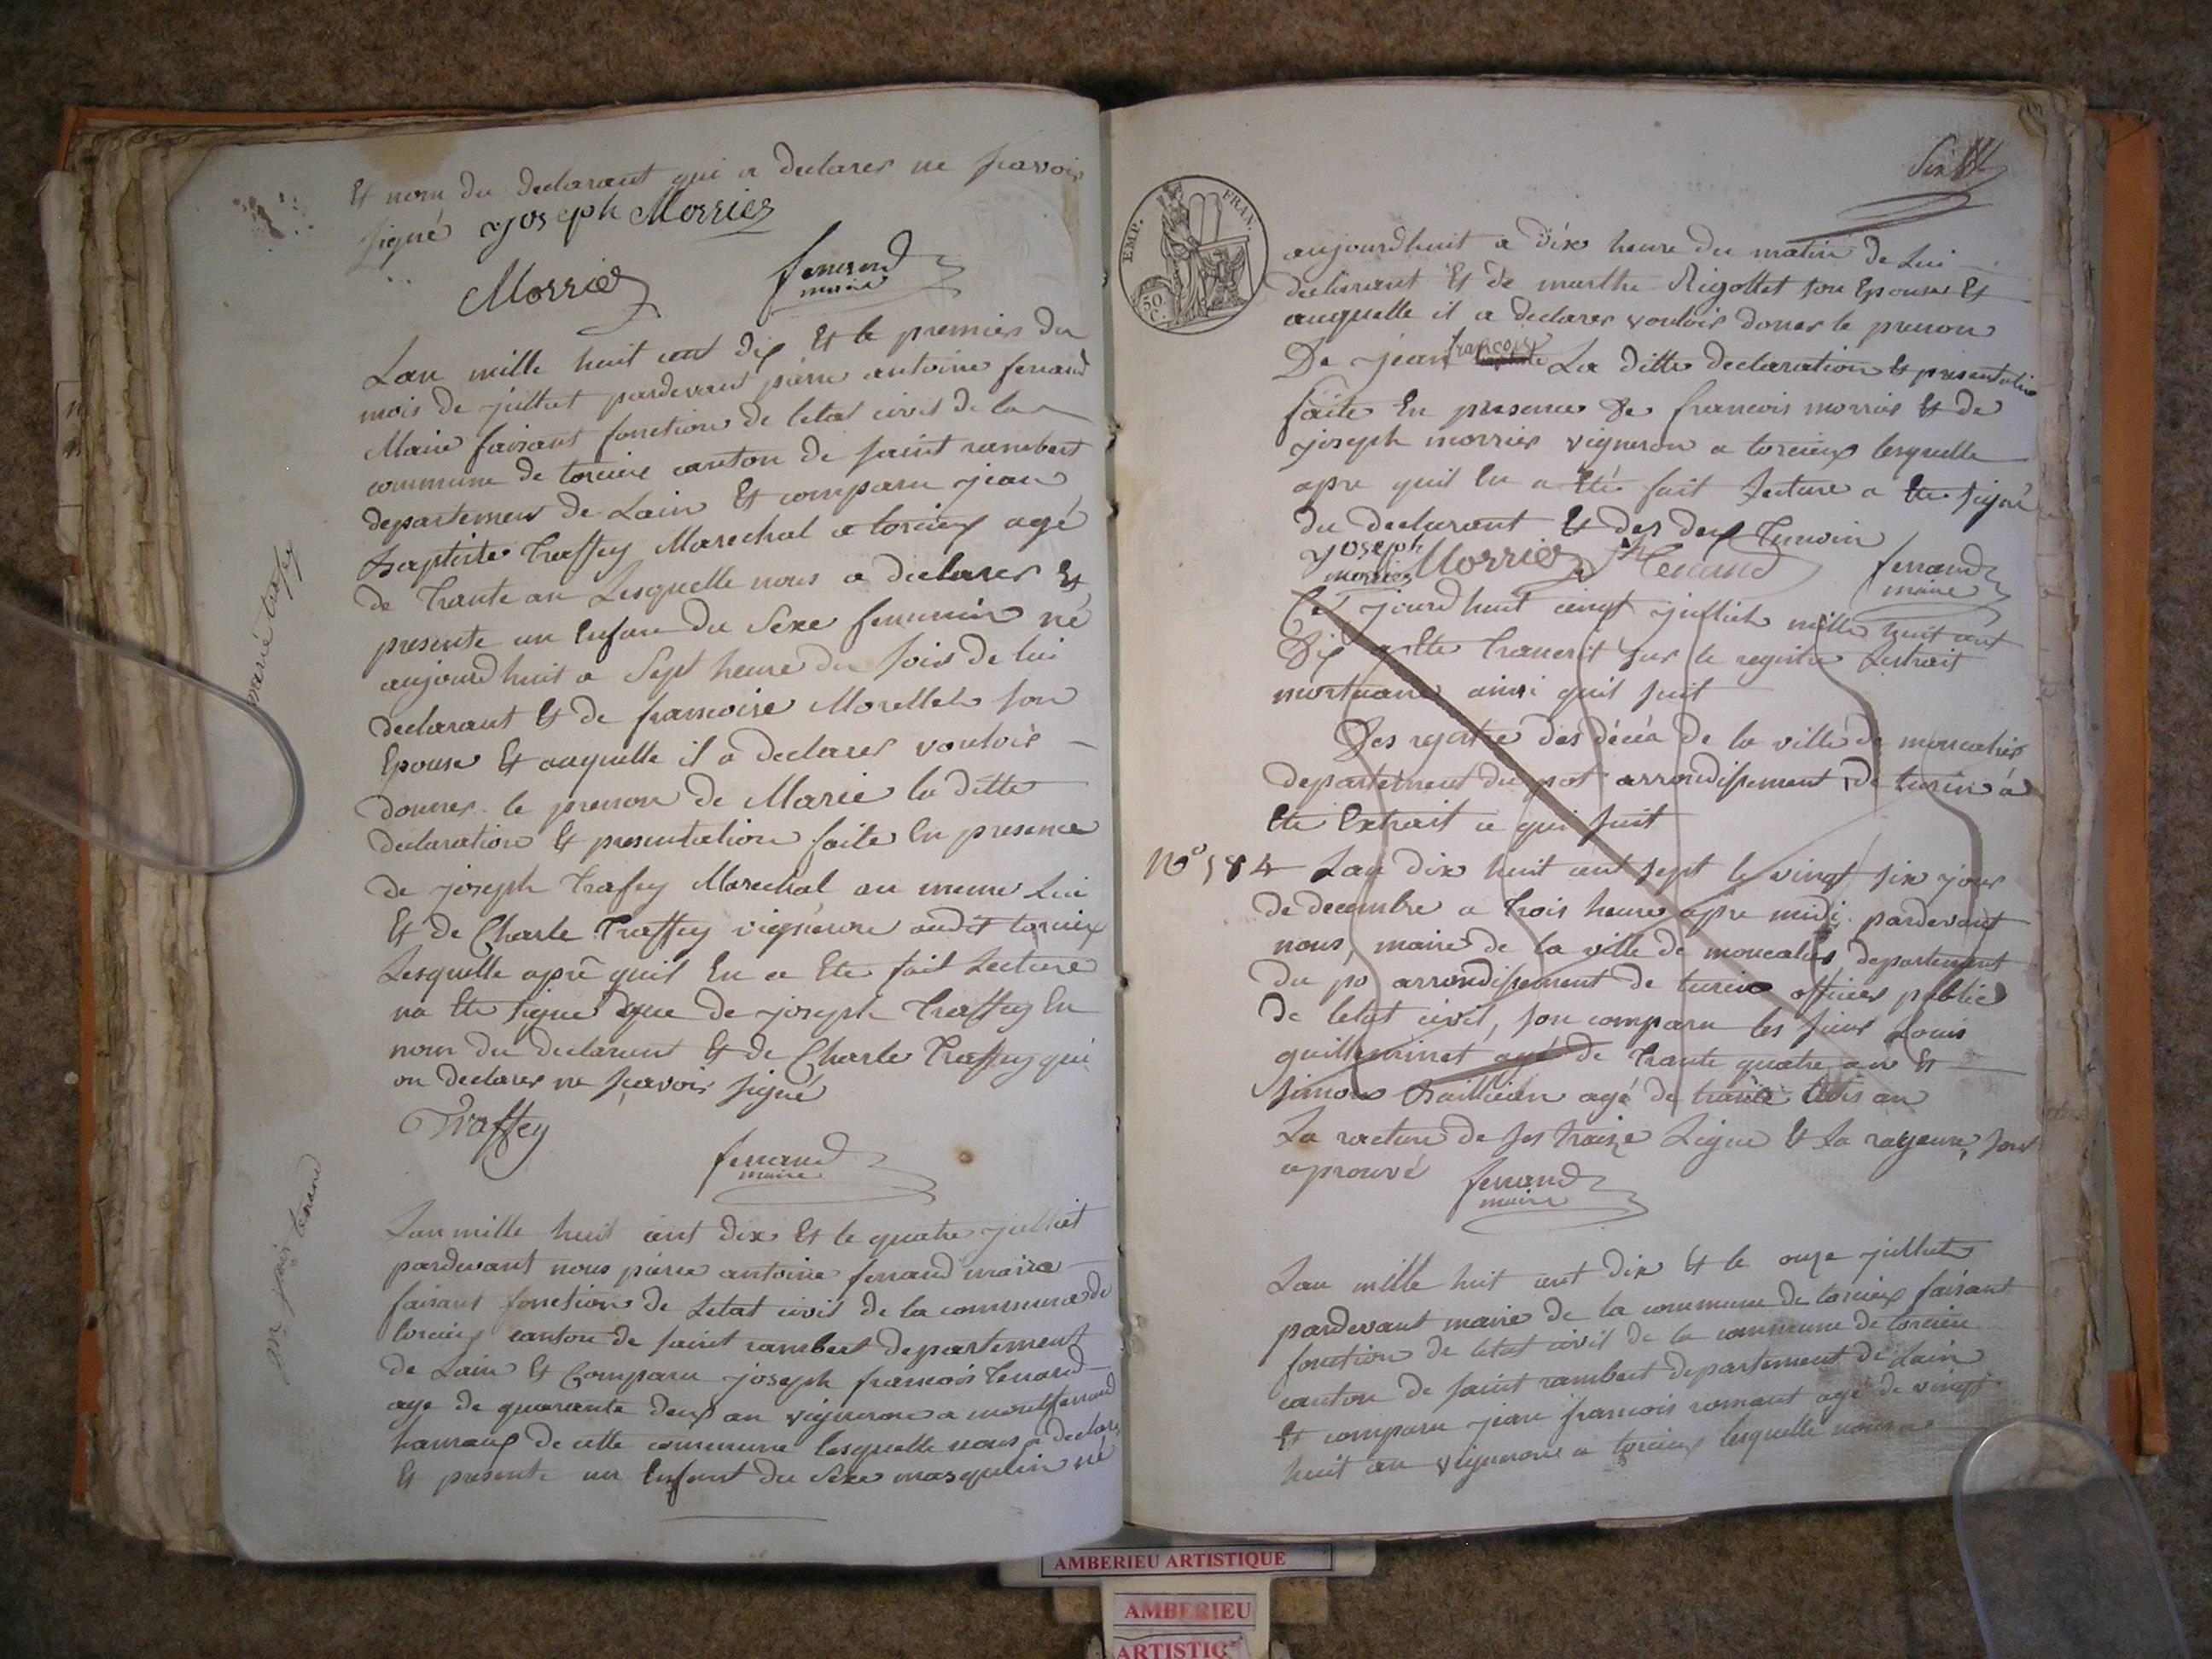 Et nom du declarant qui a declarer ne scavoir
signé yoseph Morrier
Morrier
ferrand
maire
Lan mille huit cent dix Et le premier du
mois de jullet pardevant pierre antoine ferrand
Maire faisant fonction de letat civil de la
commune de torcieu canton de saint rambert
departement de Lain Et comparu jean
Baptiste Traffey Marechal a torcieux agé
de Trante an Lesquelle nous a declarer Et
presente un Enfant du Sexe feminin né
aujourdhuit a Sept heure du soir de lui
declarant Et de francoise Morellet son
Epouse Et auquelle il a declarer vouloir
donner le prenom de Marie la ditte
declaration Et presentation faite En presence
de joseph Trafey Marechal au meme Lui
Et de Charle Traffey vigneron audit torcieux
Lesquelle apré quil En a Ete fait Lecture
na Ete signé que de joseph Traffey En
nom du declarent Et de Charle Traffey qui
on declarer ne scavoir signé
Traffey
ferrand
maire
marie trafey
Lan mille huit cent dix Et le quatre julliet
pardevant nous pierre antoine ferrand maire
faisant fonction de Letat civil de la commune de
torcieux canton de saint rambert departement
de Lain Et Comparu joseph francois Tenand
age de quarante deux an vigneron a montferrand
hamaux de cette commune lesquelle nous a declarer
Et presente un Enfant du Sexe masqulin né
Six
EMP. FRAN.
50 C.
aujourdhuit a dix heure du matin de Lui
declarant Et de marthe Rigottet son Epouse Et
auquelle il a declarer vouloir doner le prenom
De jean francois La ditte declaration Et presentation
faite En presence de francois morrier Et de
joseph morrier vigneron a torcieux lesquelle
apre quil En a Eté fait Lecture a Ete signé
du declarant Et des deux Temoin
yoseph
morrier Morrier Tenand ferrand
maire
Cej jourdhuit cinqt julliet mille huit cent
Dix a Ete Transcrit sur le registre Lextrait
mortuaire ainsi quil suit
Des registre des décéa de la ville de moncalier
departement du pot arrondissement de turin a
Ete Extrait ce qui suit
No 184 Lan dix huit cent sept le vingt six jour
de decembre a trois heure apre midi pardevant
nous, maire de la ville de moncalier departement
du po arrondissement de turin officier public
de letat civil, son comparu les sieur Louis
guilleminet agé de Trante quatre an Et
simon agé de trante trois an
La racture de ses traize Ligne Et la rayeure sont
aprouvé ferrand
maire
Lan mille huit cent dix Et le onze jullet
pardevant maire de la commune de torcieux faisant
fonction de letat civil de la commune de torcieu
canton de saint rambert departement de Lain
Et comparu jean francois romant agé de vingt
huit an vigneron a torcieux lesquelle nous a
AMBERIEU ARTISTIQUE
AMBERIEU
ARTISTIQ